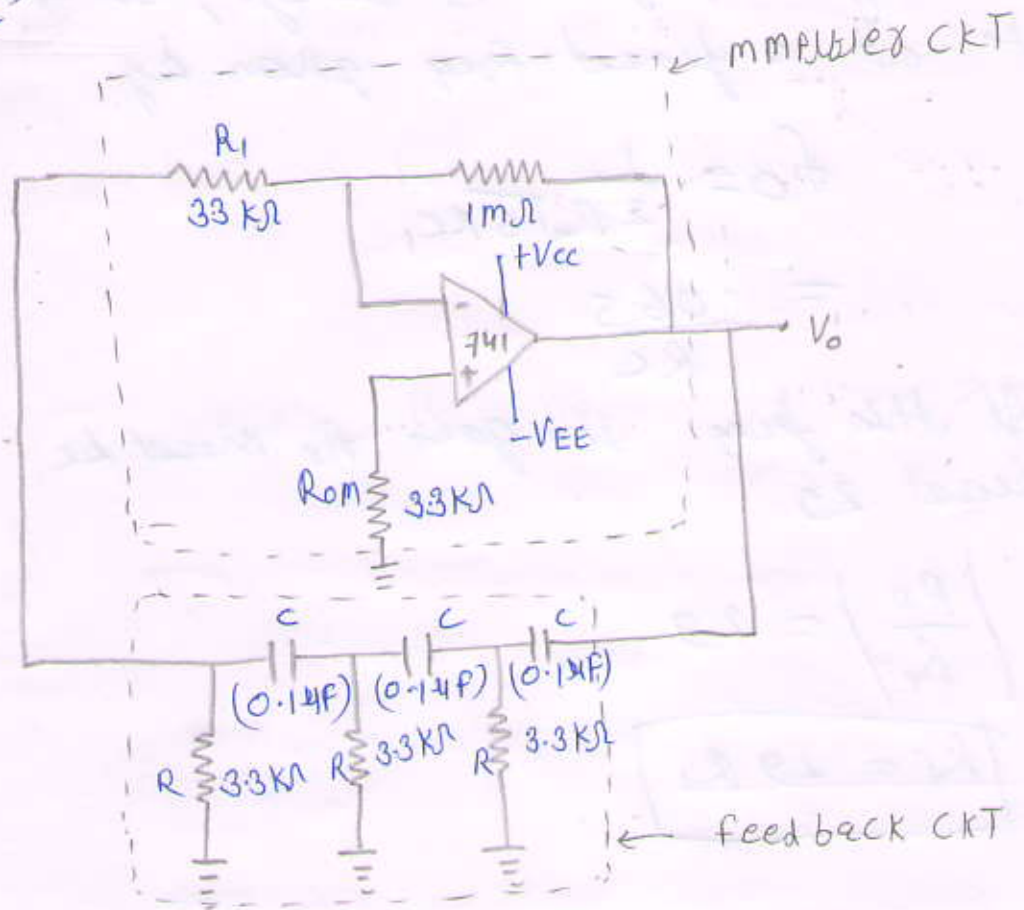 mmplbier CKT
R1
33 kΩ
1mΩ
+Vcc
-
741
+
Vo
-VEE
Rom 33KΩ
C C C
(0.1μF) (0.1μF) (0.1μF)
R 3.3KΩ R 3.3KΩ R 3.3KΩ
feedback CKT